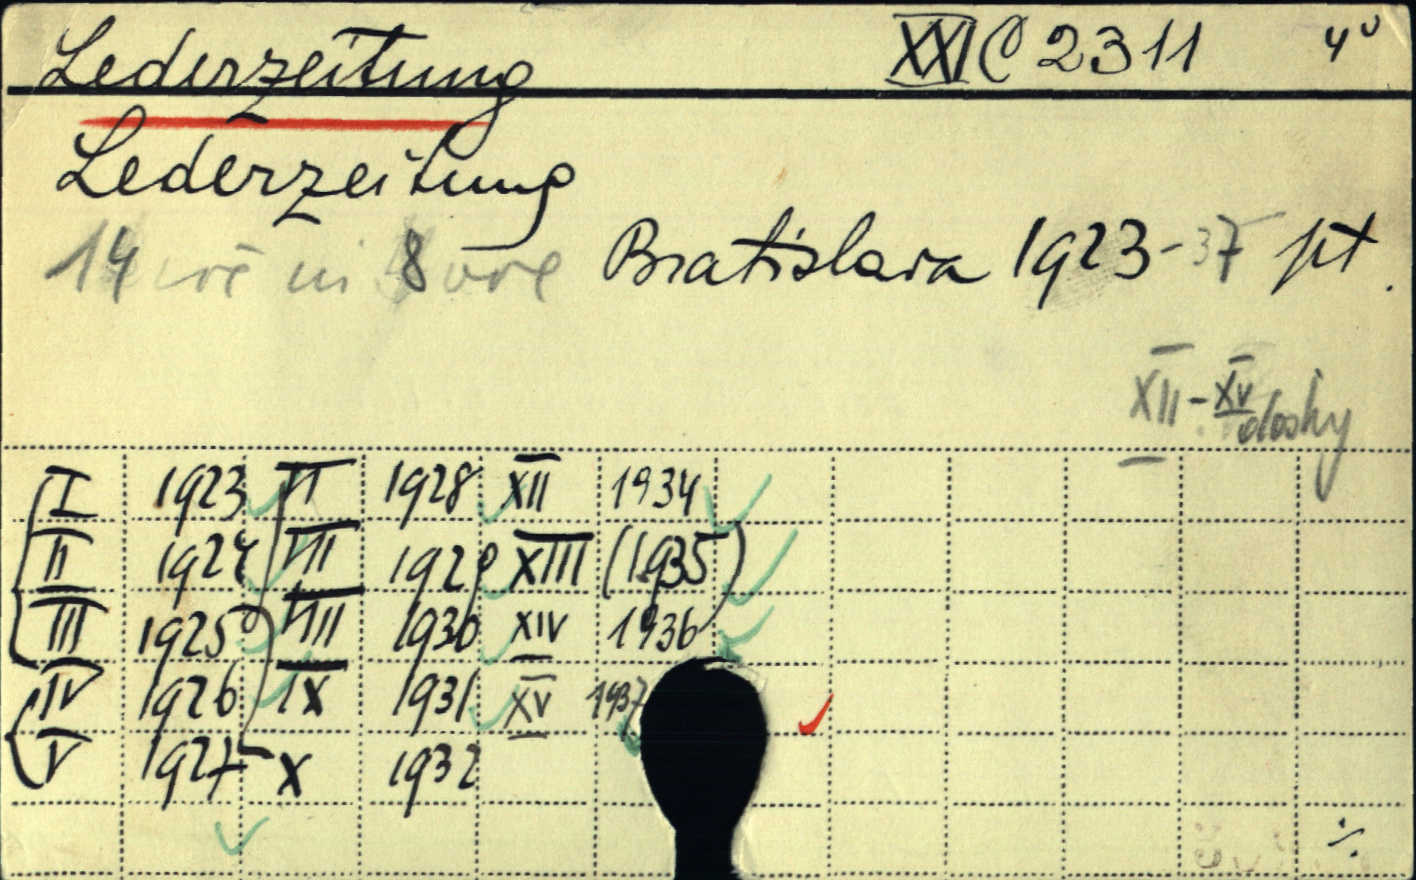 Lederzeitung XXI C 2311 4°
Lederzeitung
14 8 Bratislava 1923-37 pt.
XII-XV dosky
I 1923 VI 1928 XII 1934
II 1924 VII 1929 XIII (1935)
III 1925 VIII 1930 XIV 1936
IV 1926 IX 1931 XV 1937
V 1927 X 1932